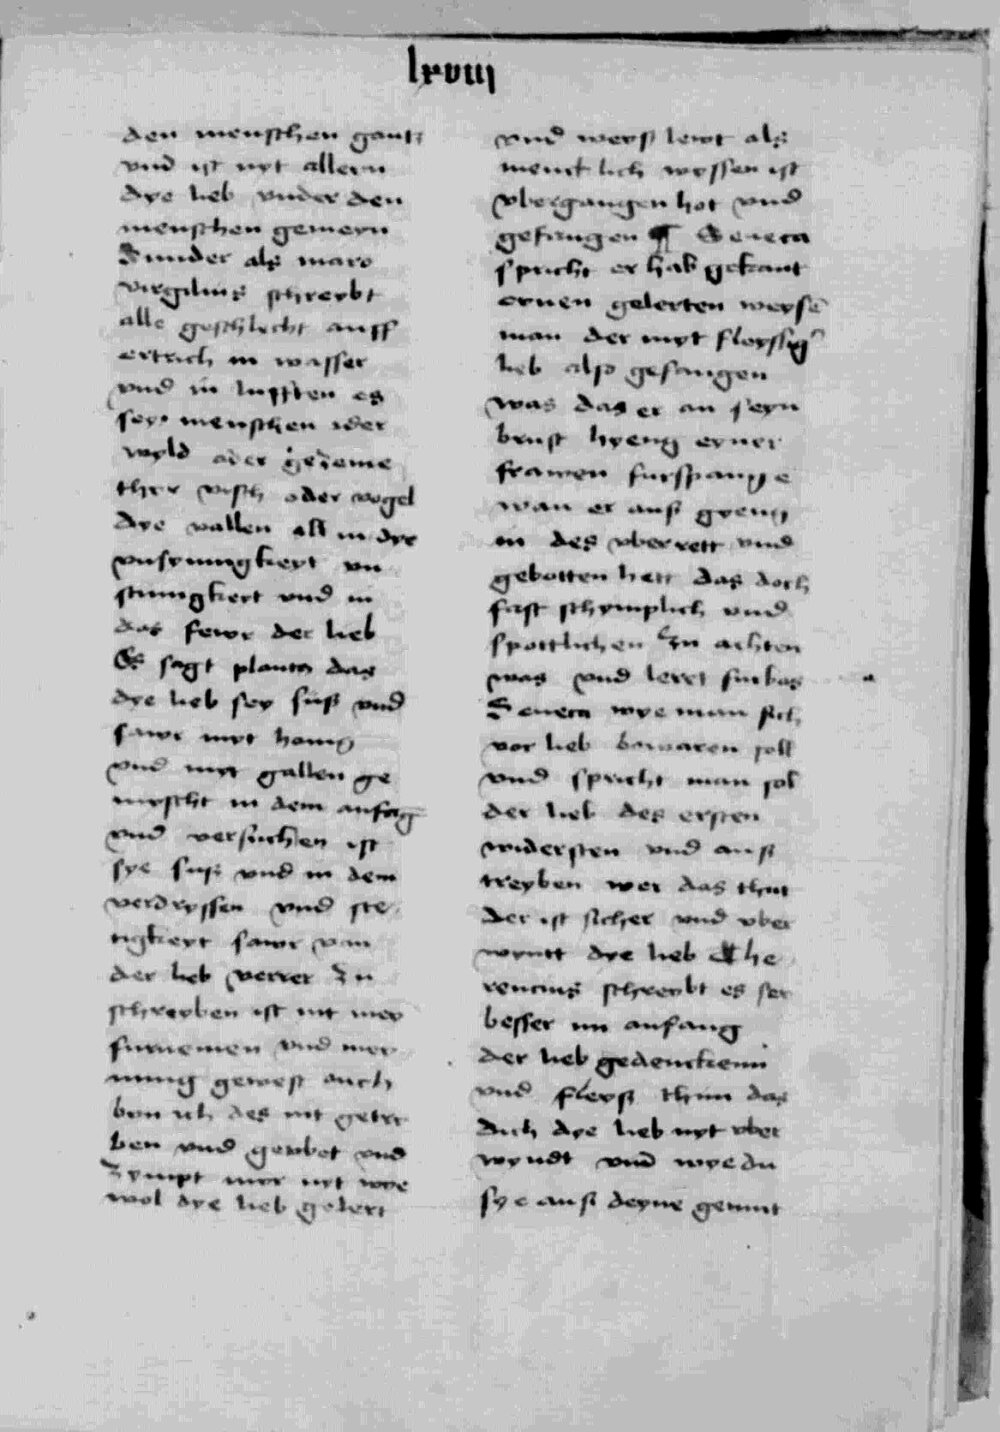 lxviij
den menschen gantz
vnd ist nyt alleyn
dye lieb vnder den
menschen gemeyn
Sunder als maro
virgilius schreybt
alle geschlecht auff
ertrich in wasser
vnd in lufften es
sey menschen oder
wyld oder gezeme
thyr visch oder vogel
dye vallen all in dye
vnsynnigkeyt vn
stunigkeyt vnd in
das fewr der lieb
Es sagt plautus das
dye lieb sey süß vnd
sawr myt honig
vnd myt gallen ge
myscht in dem anfāg
vnd versuchen ist
sye süß vnd in dem
verdryssen vnd ste
tigkeyt sawr van
der lieb verrer zu
schreyben ist nit mey
furnemen vnd mey
nung gewest auch
byn ich des nit getry
ben vnd geubet vnd
zympt myr nyt wye
wol dye lieb gelert
vnd weyß lewt als
menck lich wyssen ist
vbergangen hot vnd
gefangen ¶ Seneca
spricht er hab gekant
eynen gelerten weysē
man der myt fleyssigr
lieb also gefangen
was das er an seyn
brust hyeng eyner
frawen furspange
wan er auß gyeng
in des vberrett vnd
gebotten hett das doch
fast schymplich vnd
spottlichen zu achten
was vnd leret furbas
Seneca wye man sich
vor lieb bewaren soll
vnd spricht man sol
der lieb des ersten
widersten vnd auß
treyben wer das thut
der ist sicher vnd vber
wyntt dye lieb ¶ The
rencius schreybt es sey
besser im anfang
der lieb gedenckenn
vnd fleyß thun das
dich dye lieb nyt vber
wyndt vnd wye du
sye auß deyne gemut